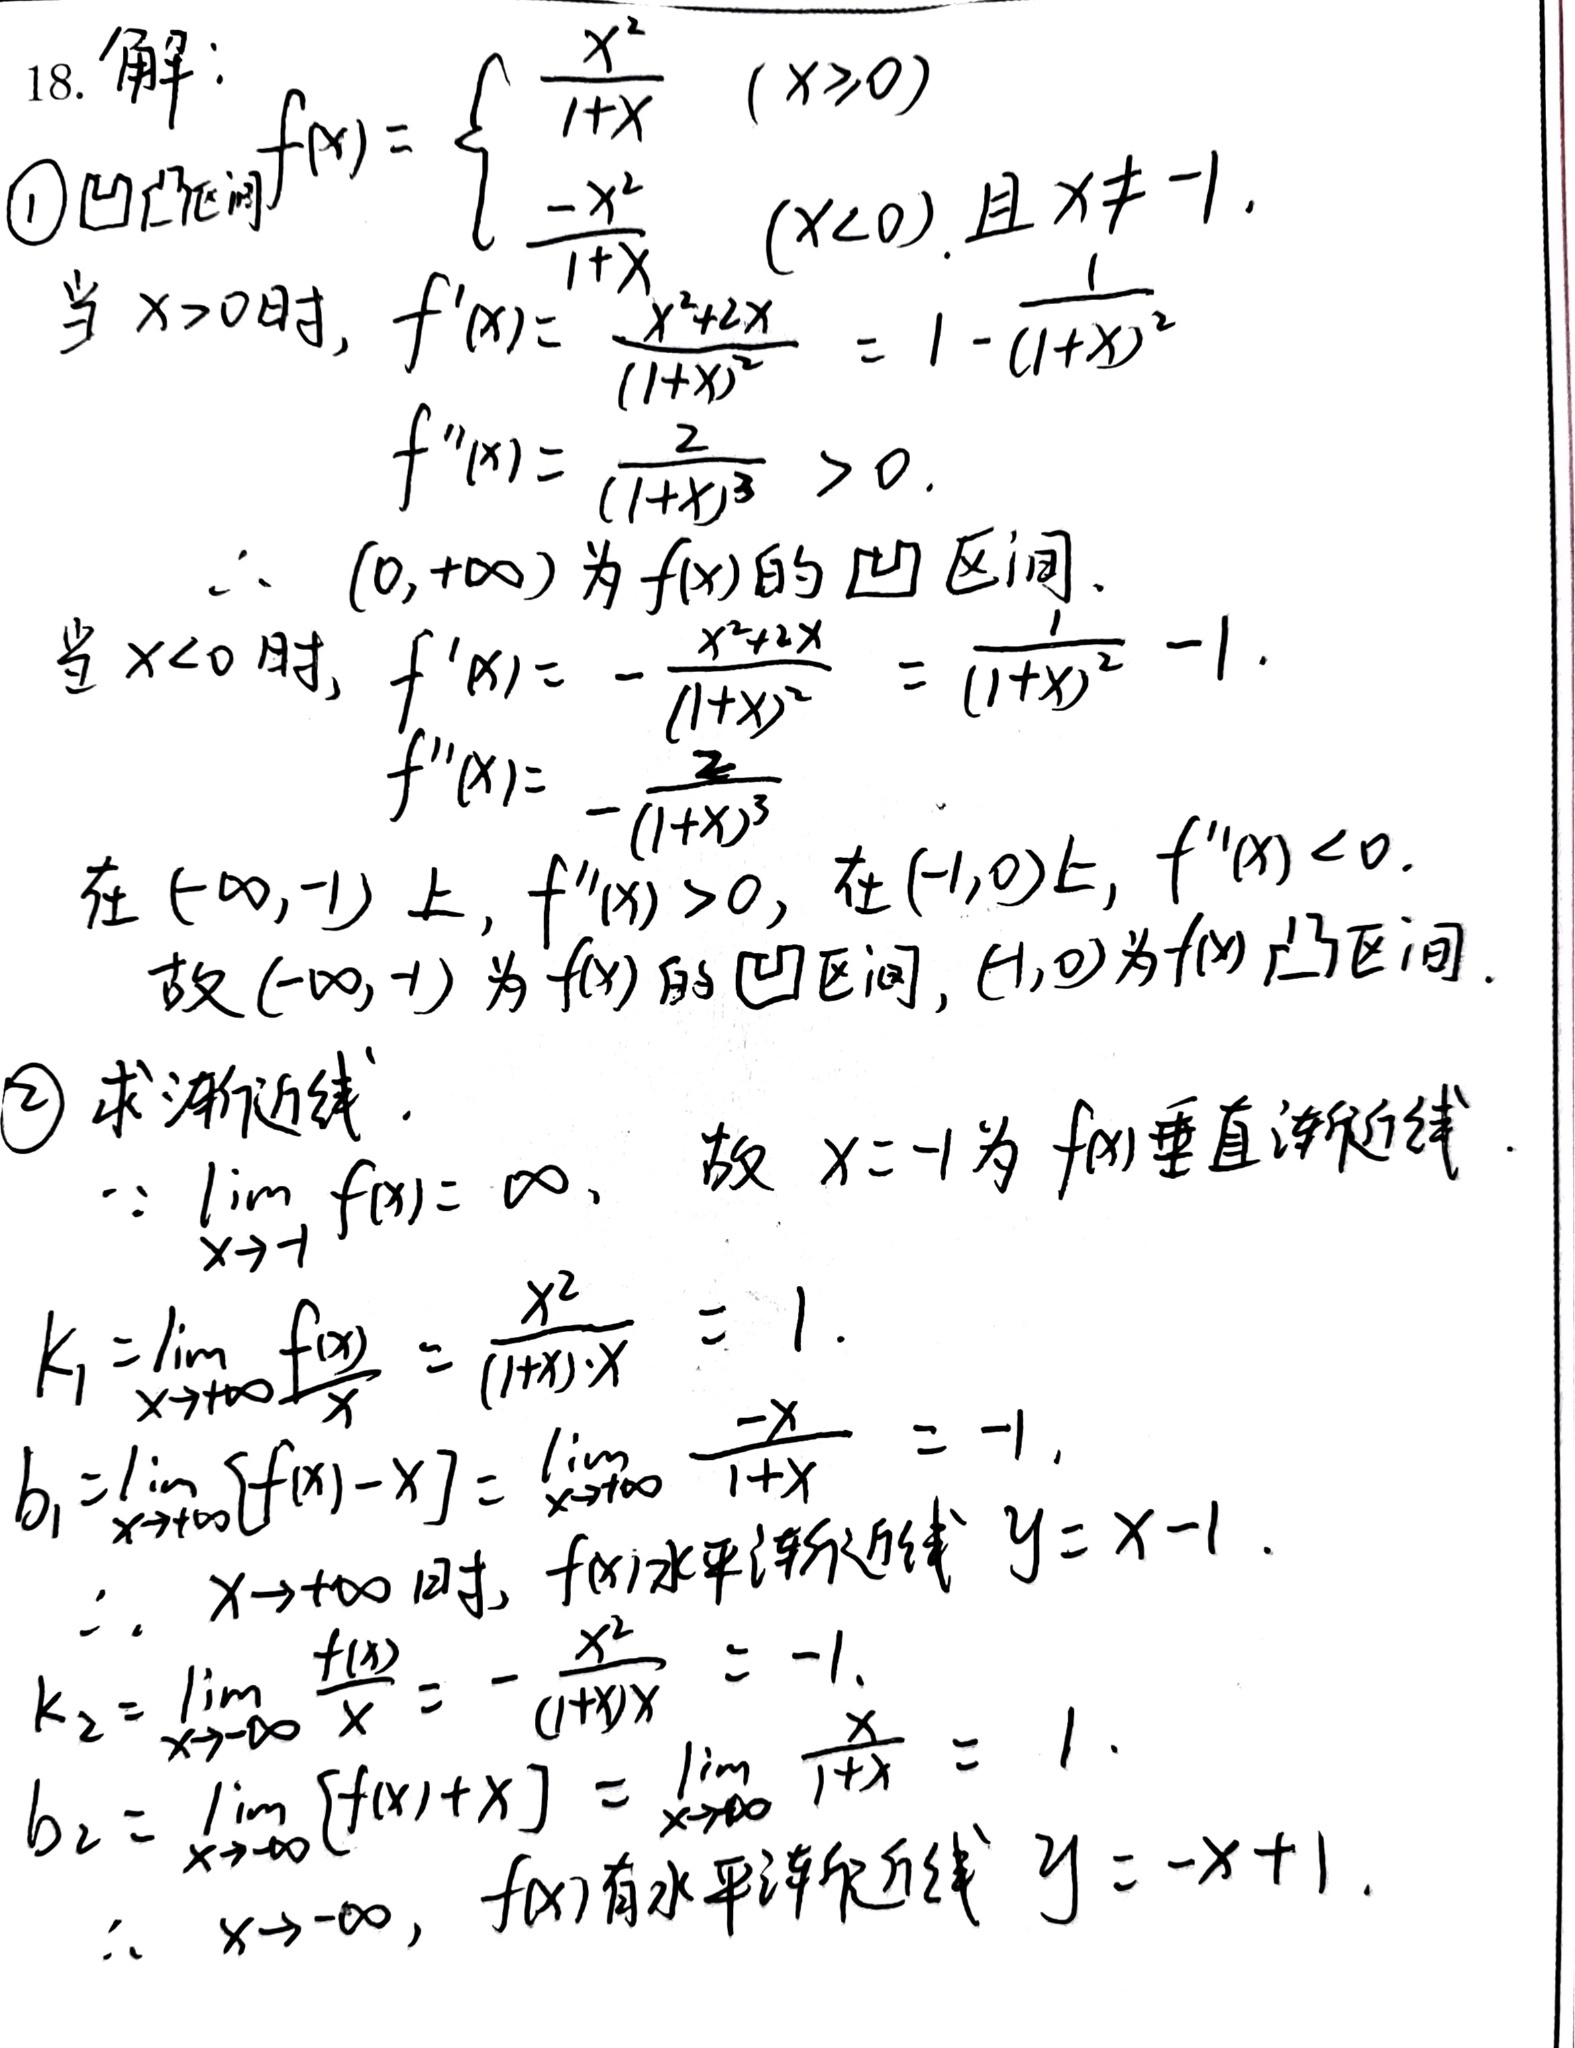 18. 解:
f(x) = { x²/(1+x) (x≥0)
-x²/(1+x) (x<0). 且 x≠-1.
①凹凸区间
当 x>0时, f'(x) = (x²+2x)/(1+x)² = 1 - 1/(1+x)²
f''(x) = 2/(1+x)³ > 0.
∴ (0,+∞) 为 f(x) 的 凹 区间.
当 x<0 时, f'(x) = - (x²+2x)/(1+x)² = 1/(1+x)² -1.
f''(x) = - 2/(1+x)³
在 (-∞,-1) 上, f''(x) >0, 在(-1,0)上, f''(x) <0.
故 (-∞,-1) 为 f(x) 的 凹区间, (-1,0)为f(x) 凸区间.
② 求渐近线.
∵ lim x→-1 f(x) = ∞, 故 x=-1为 f(x)垂直渐近线.
K₁ = lim x→+∞ f(x)/x = x²/((1+x)·x) = 1.
b₁ = lim x→+∞ [f(x)-x] = lim x→+∞ -x/(1+x) = -1.
∴ x→+∞时, f(x)水平渐近线 y=x-1.
K₂ = lim x→-∞ f(x)/x = - x²/((1+x)x) = -1.
b₂ = lim x→-∞ [f(x)+x] = lim x→-∞ x/(1+x) = 1.
∴ x→-∞, f(x)有水平渐近线 y=-x+1.